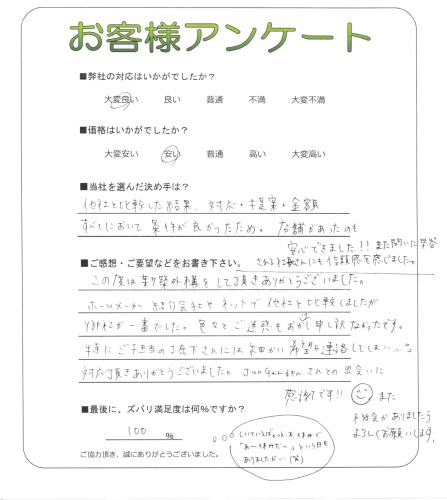 お客様アンケート
■弊社の対応はいかがでしたか？
大変良い 良い 普通 不満 大変不満
■価格はいかがでしたか？
大変安い 安い 普通 高い 大変高い
■当社を選んだ決め手は？
他社と比較した結果、対応・提案・金額
すべてにおいて条件が良かったため。店舗があったのも
安心できました！！また問いに早答
さかる社長さんにも信頼感を感じました。
■ご感想・ご要望などをお書き下さい。
この度は新築外構をして頂きありがとうございました。
ホームメーカー 紹介会社や ネットで 他社と比較しましたが
御社が一番でした。色々とご迷惑もおかけし申し訳なかったです。
特に ご担当の 下さんには 細かい希望や連絡してしまい…。
対応頂きありがとうございました。JunGardenさんとの出会いに
感謝です!! また
機会がありましたら
よろしくお願いします。
■最後に、ズバリ満足度は何％ですか？
100 ％
しいていえばロスに お休みで
「あー休みだー」という日も
ありましたかい(笑)
ご協力頂き、誠にありがとうございました。